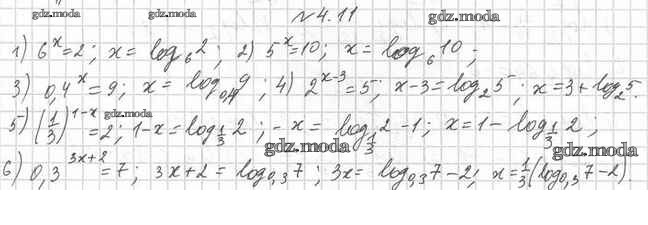 gdz.moda gdz.moda №4.11 gdz.moda
1) 6^x=2; x = log_6 2; 2) 5^x=10; x = log_6 10;
3) 0,4^x=9; x = log_0,4 9; 4) 2^(x-3)=5; x-3=log_2 5; x=3+log_2 5.
5) (1/3)^(1-x)=2; 1-x=log_(1/3) 2; -x = log_(1/3) 2 -1; x=1-log_(1/3) 2;
gdz.moda gdz.moda gdz.moda
6) 0,3^(3x+2)=7; 3x+2 = log_0,3 7; 3x = log_0,3 7-2; x=1/3(log_0,3 7-2).